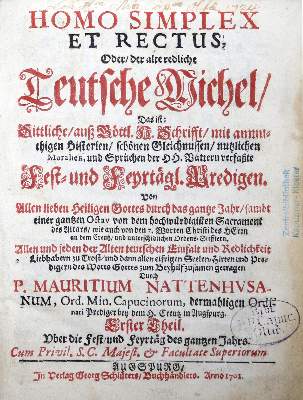 HOMO SIMPLEX
ET RECTUS,
Oder/ der alte redliche
Teutsche Michel/
Das ist:
Sittliche/ auß Göttl. H. Schrifft/ mit anmu-
thigen Historien/ schönen Gleichnussen/ nutzlichen
Moralien, und Sprüchen der HH. Vättern verfaßte
Fest- und Feyrtägl. Predigen.
Von
Allen lieben Heiligen Gottes durch das gantze Jahr/ samt
einer gantzen Octav von dem hochwürdigisten Sacrament
des Altars/ wie auch von den 7. Worten Christi des HErrn
an dem Creutz, und unterschidlichen Ordens-Stifftern,
Allen und jeden der Alten teutschen Einfalt und Redlichkeit
Liebhabern zu Trost/ und dann allen eifrigen Seelen-Hirten und Pre-
digern des Worts Gottes zum Behülff zusamen getragen
Durch
P. MAURITIUM NATTENHUSA-
NUM, Ord. Min. Capucinorum, dermahligen Ordi-
nari Prediger bey dem H. Creutz in Augspurg.
Erster Theil.
Uber die Fest- und Feyrtäg des gantzen Jahrs.
Cum Privil. S. C. Majest. & Facultate Superiorum.
AUGSPURG/
In Verlag Georg Schlüters/ Buchhändlers. Anno 1701.